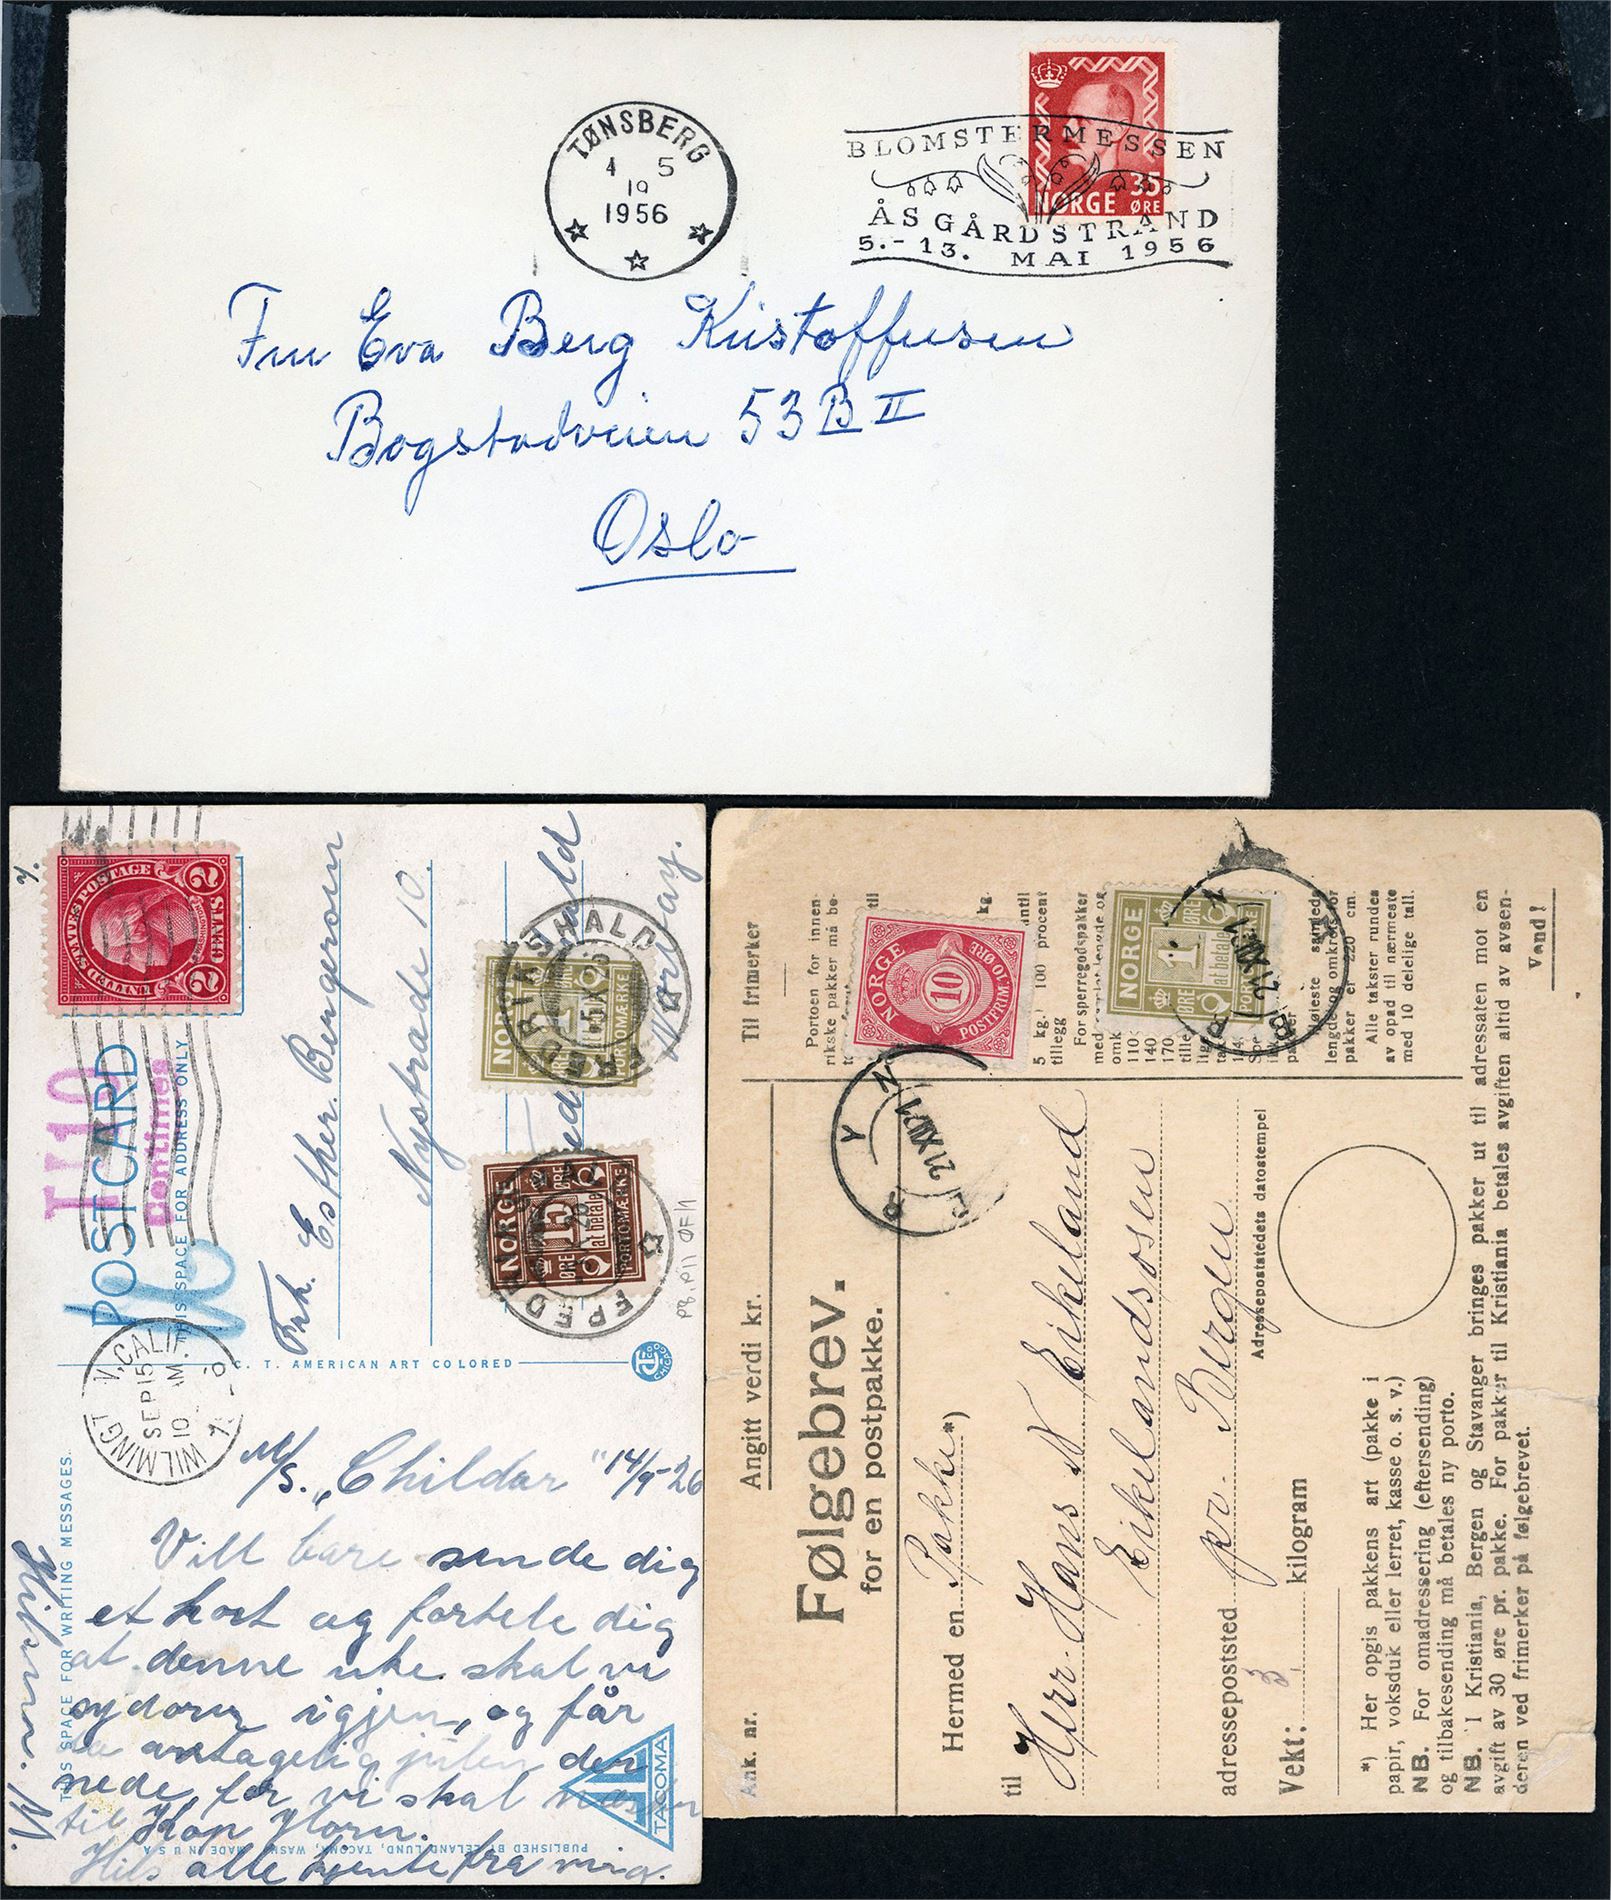 TØNSBERG
4 5
19
1956
BLOMSTERMESSEN
ÅSGÅRDSTRAND
5.-13. MAI 1956
NORGE 35 ØRE
Fru Eva Berg Kristoffersen
Bogstadveien 53 B II
Oslo
UNITED STATES POSTAGE
2 CENTS 2
POST CARD
THIS SPACE FOR ADDRESS ONLY
T 10
Centimes
WILMINGT
CALIF.
SEP 15
10 AM
Frk. Esther Bengerson
Nystræde 10.
Norway.
NORGE
1 ØRE
at betale
PORTOMÆRKE
FREDRIKSHALD
5 X 26
NORGE
15 ØRE
at betale
PORTOMÆRKE
C. T. AMERICAN ART COLORED
CHICAGO
THIS SPACE FOR WRITING MESSAGES
M/S. "Childar" 14/9-26
Vill bare sende dig
et kort og fortele dig
at denne uke skal vi
sydover igjen, og får
antagelig julen der
nede, for vi skal
til Kap Horn.
Hils alle kjente fra mig.
TACOMA
PUBLISHED BY LELAND LUND, TACOMA, WASH. MADE IN U S A
Ank. nr.
Angitt verdi kr.
Til frimerker
Følgebrev.
for en postpakke.
Hermed en Pakke *)
til Herr Hans N Eikeland
Eikelandsosen
adressepoststed pr. Bergen
Vekt: 3 kilogram
Adressepoststedets datostempel
Portoen for innen-
rikske pakker må be-
kg.
5 kg. 100 procent
tillegg
For sperregodspakker
lengde og omkrets for
pakker er 220 cm.
Alle takster rundes
av opad til nærmeste
med 10 delelige tall.
NORGE
10
POSTFRIM. 10 ØRE
NORGE
1 ØRE
at betale
21 XII 21
21 XII 21
*) Her opgis pakkens art (pakke i
papir, voksduk eller lerret, kasse o. s. v.)
NB. For omadressering (eftersending)
og tilbakesending må betales ny porto.
NB. I Kristiania, Bergen og Stavanger bringes pakker ut til adressaten mot en
avgift av 30 øre pr. pakke. For pakker til Kristiania betales avgiften altid av avsen-
deren ved frimerker på følgebrevet.
Vend!